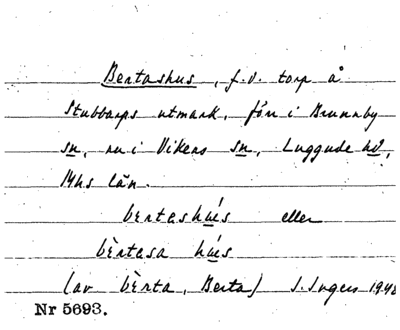 Bertashus, f.d. torp å
Stubbarps utmark, förr i Brunnby
sn, nu i Vikens sn, Luggude hd,
Mhs län.
bertashús eller
bèrtasa hús
(av bèrta, Berta) I. Ingers 1948
Nr 5693.